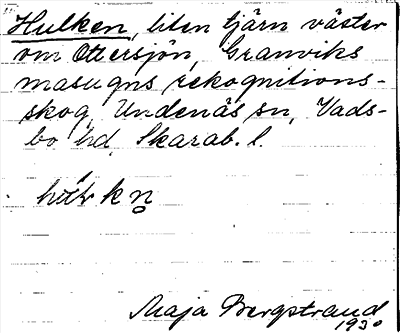 Hulken, liten tjärn väster
om Ottersjön, Granviks
masugns rekognitions-
skog, Undenäs sn, Vads-
bo hd, Skarab. l.
Maja Bergstrand
1930